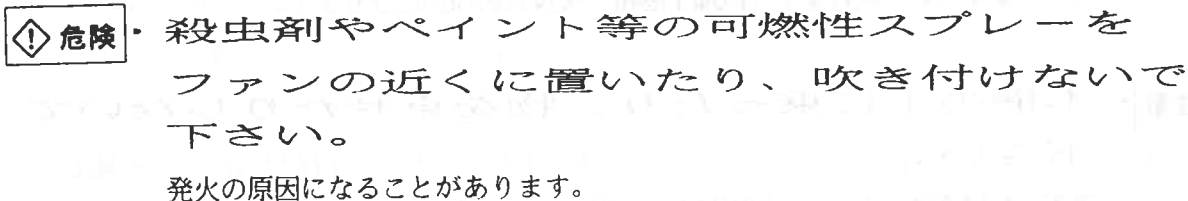 危険・殺虫剤やペイント等の可燃性スプレーを
ファンの近くに置いたり、吹き付けないで
下さい。
発火の原因になることがあります。